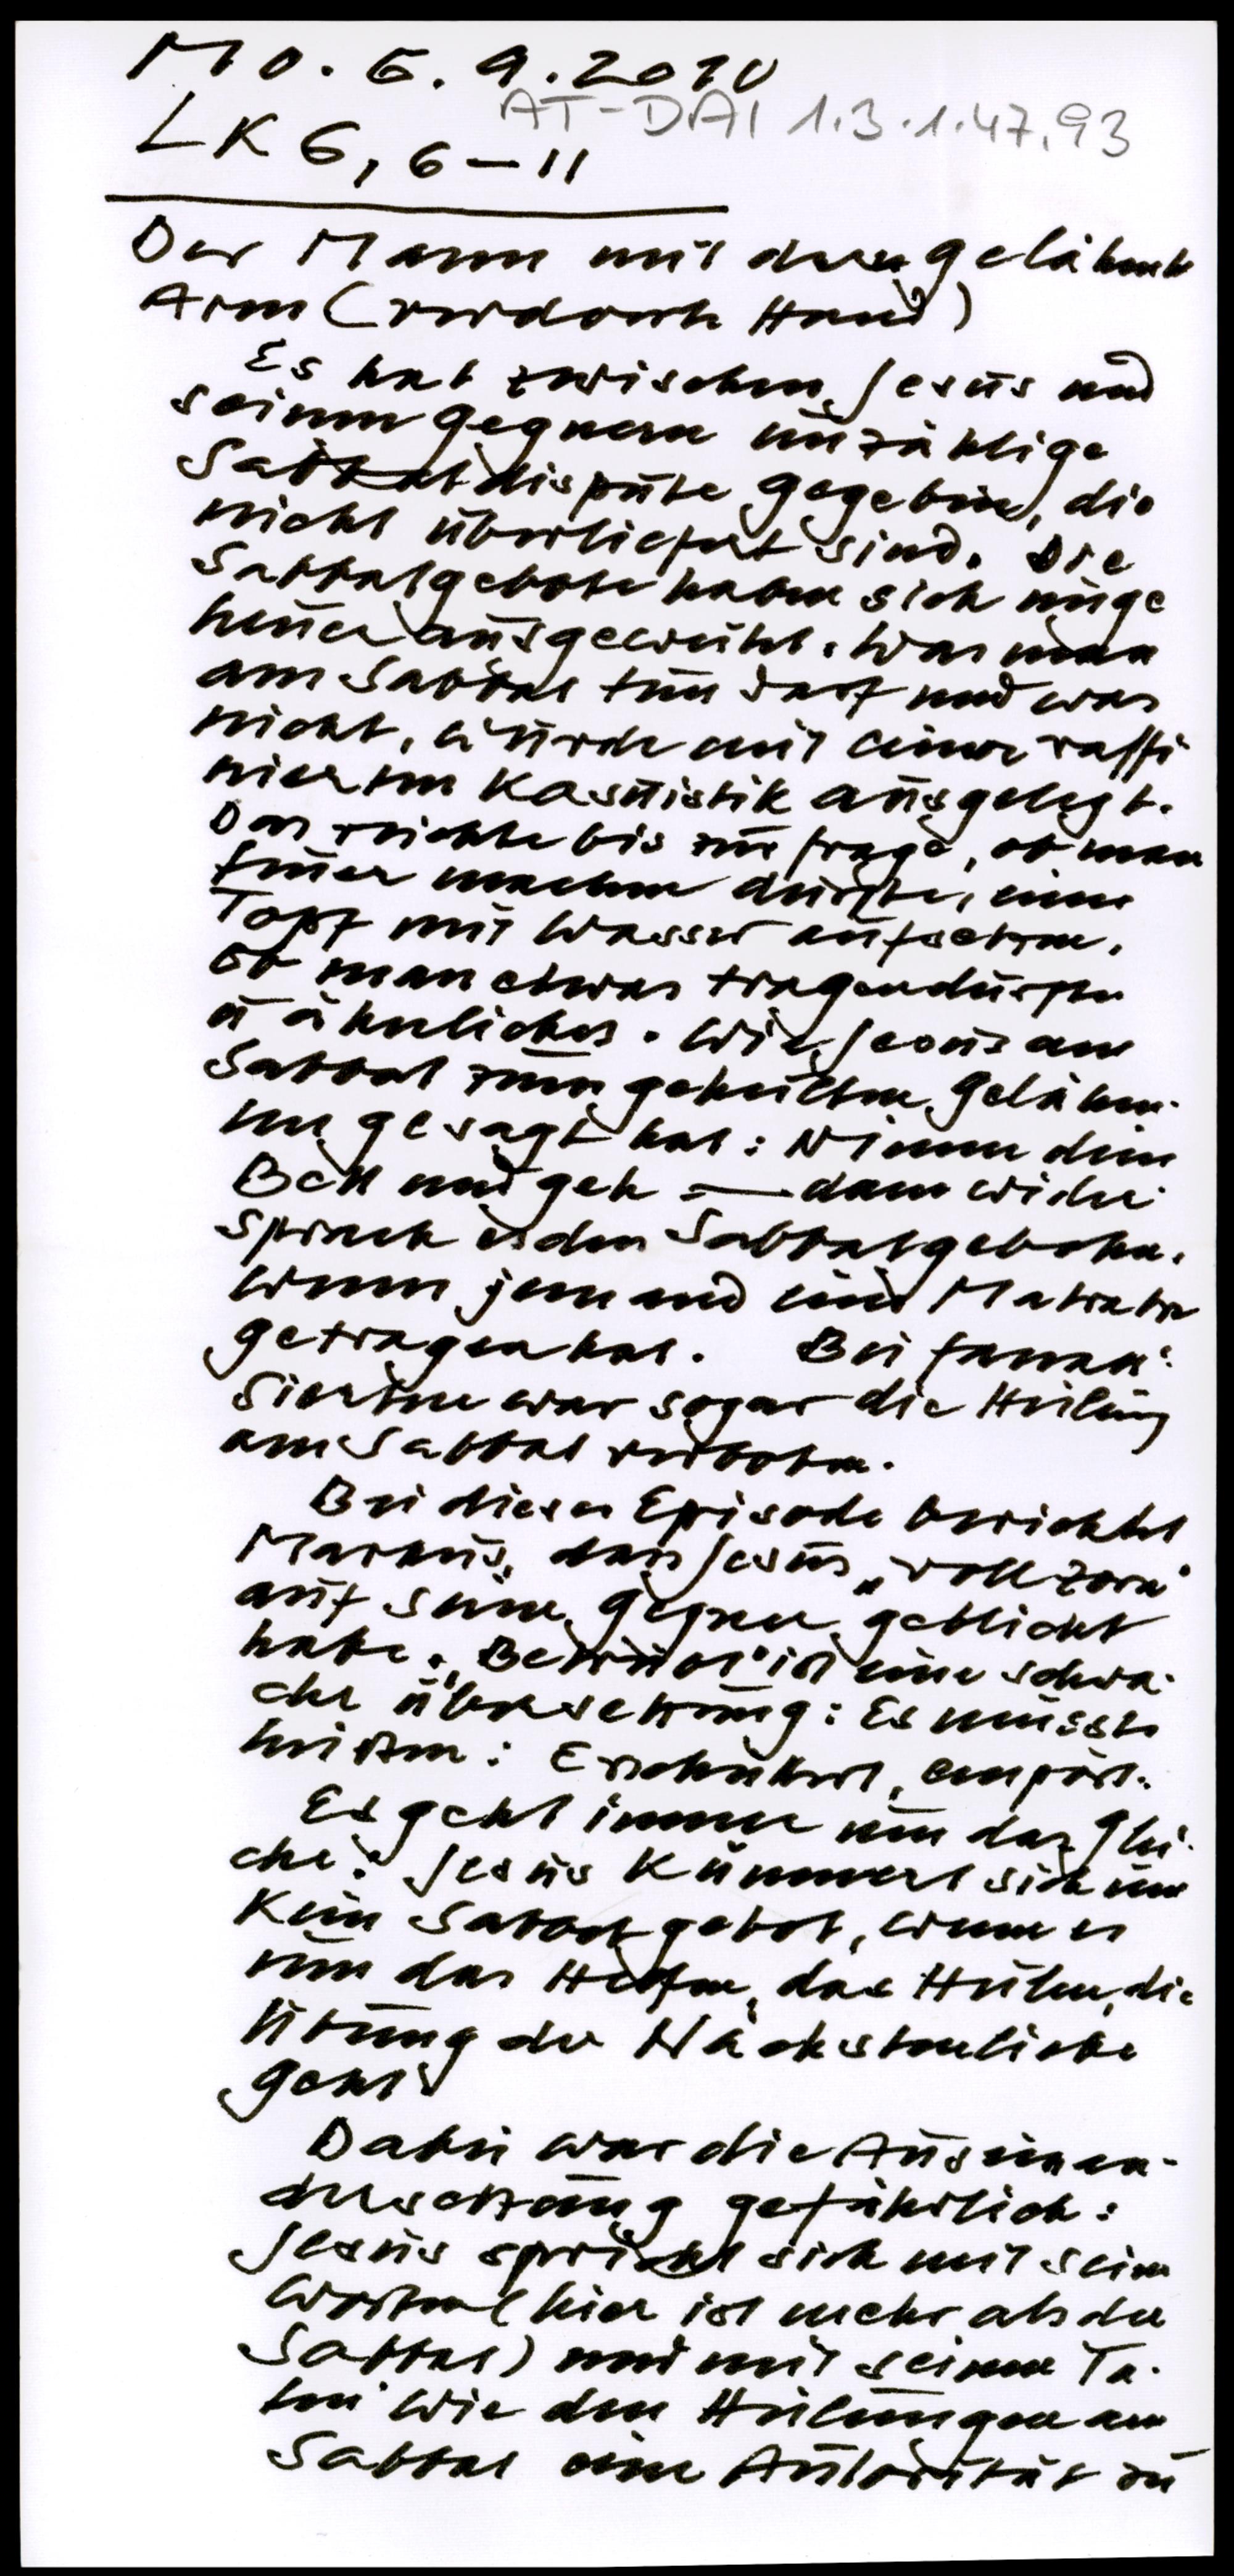 Mo. 6.9.2010
AT-DAI 1.3.1.47.93
LK 6,6-11
Der Mann mit dem gelähmten
Arm (verdorrte Hand)
Es hat zwischen Jesus und
seinen Gegnern unzählige
Sabbatdispute gegeben, die
nicht überliefert sind. Die
Sabbatgebote haben sich unge
heuer ausgewirkt. Was man
am Sabbat tun darf und was
nicht, wurde mit einer raffi
nierten Kasuistik ausgelegt.
Das reichte bis zur Frage, ob man
Feuer machen dürfte, einen
Topf mit Wasser aufsetzen.
Ob man etwas tragen dürfte
u ähnliches. Wie Jesus am
Sabbat zum geheilten Gelähm-
ten gesagt hat: Nimm dein
Bett und geh – dann wider-
sprach es den Sabbatgeboten.
Wenn jemand eine Matratze
getragen hat. Bei Fanati-
sierten war sogar die Heilung
am Sabbat verboten.
Bei dieser Episode berichtet
Markus, dass Jesus „voll Zorn"
auf seine Gegner geblickt
habe. „Betrübt" ist eine schwa-
che Übersetzung: Es müsste
heißen: Erschüttert, empört.
Es geht immer um das Glei-
che: Jesus kümmert sich um
kein Sabbatgebot, wenn es
um das Helfen, das Heilen, die
Übung der Nächstenliebe
geht.
Dabei war die Auseinan-
dersetzung gefährlich:
Jesus spricht sich mit seinen
Worten (hier ist mehr als der
Sabbat) und mit seinen Ta-
ten wie den Heilungen am
Sabbat eine Autorität zu